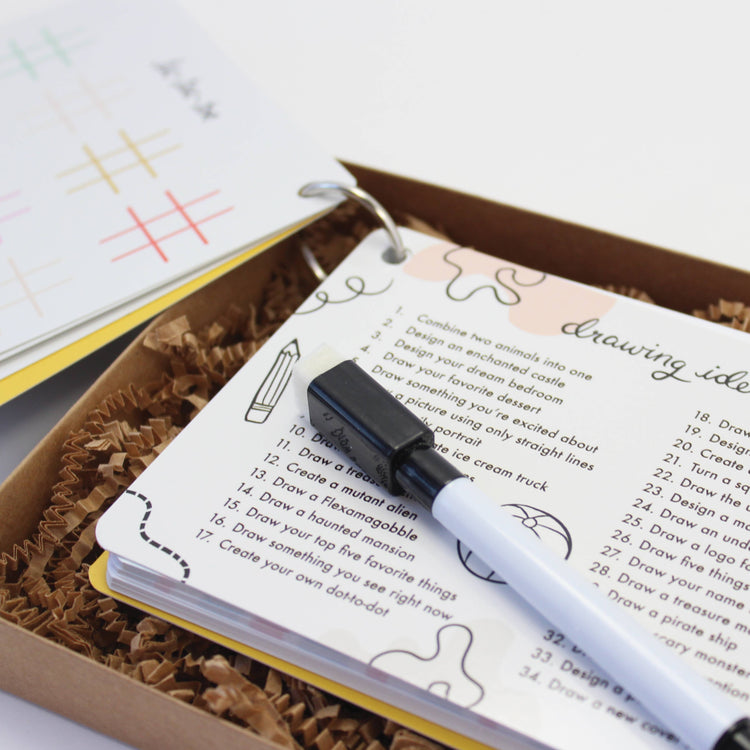 drawing ide
1. Combine two animals into one
2. Design an enchanted castle
3. Design your dream bedroom
4. Draw your favorite dessert
Draw something you're excited about
a picture using only straight lines
portrait
ice cream truck
10. Dra
11. Draw a
12. Create a mutant alien
13. Draw a Flexamagobble
14. Draw a haunted mansion
15. Draw your top five favorite things
16. Draw something you see right now
17. Create your own dot-to-dot
18. Draw
19. Design
20. Create
21. Turn a
22. Draw the
23. Design a
24. Draw an
25. Draw a logo
26. Draw five things
27. Draw your name
28. Draw a treasure
Draw a pirate ship
scary
32.
33. Design a
34. Draw a new